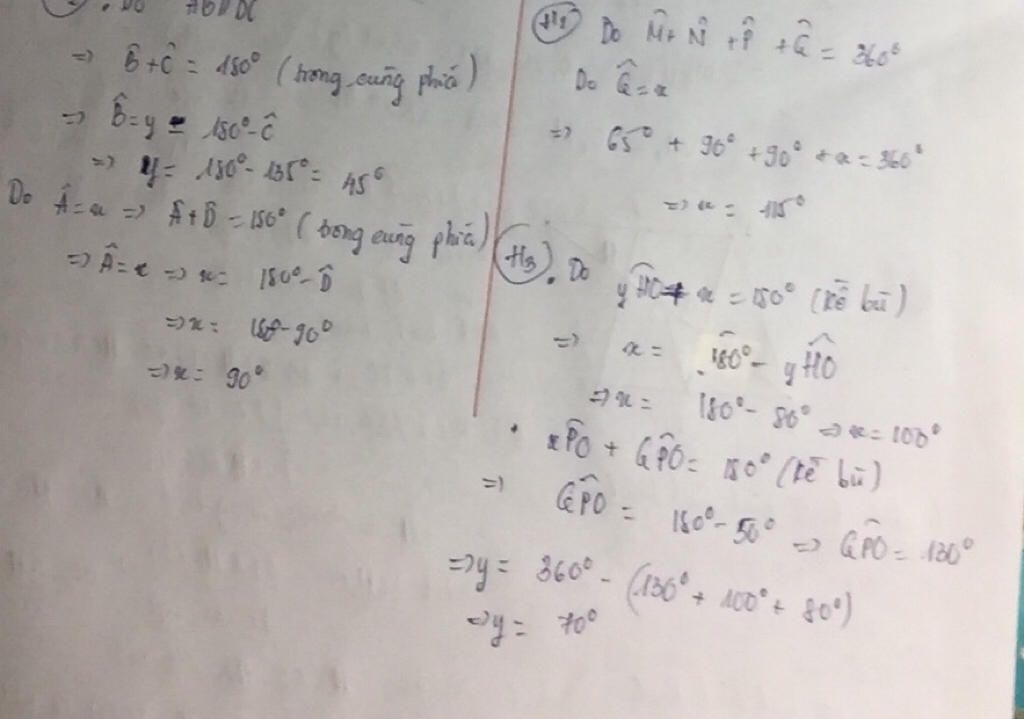 . Do AB//DC
=> B̂ + Ĉ = 180° (trong cùng phía)
=> B̂ = y = 180° - Ĉ
=> y = 180° - 135° = 45°
Do Â = x => Â + D̂ = 180° (trong cùng phía)
=> Â = x => x = 180° - D̂
=> x = 180 - 90°
=> x = 90°
H2 Do M̂ + N̂ + P̂ + Q̂ = 360°
Do Q̂ = x
=> 65° + 90° + 90° + x = 360°
=> x = 115°
H3 . Do yĤO + x = 180° (kề bù)
=> x = 180° - yĤO
=> x = 180° - 80° => x = 100°
. xP̂O + QP̂O = 180° (kề bù)
=> QP̂O = 180° - 50° => QP̂O = 130°
=> y = 360° - (130° + 100° + 80°)
=> y = 70°